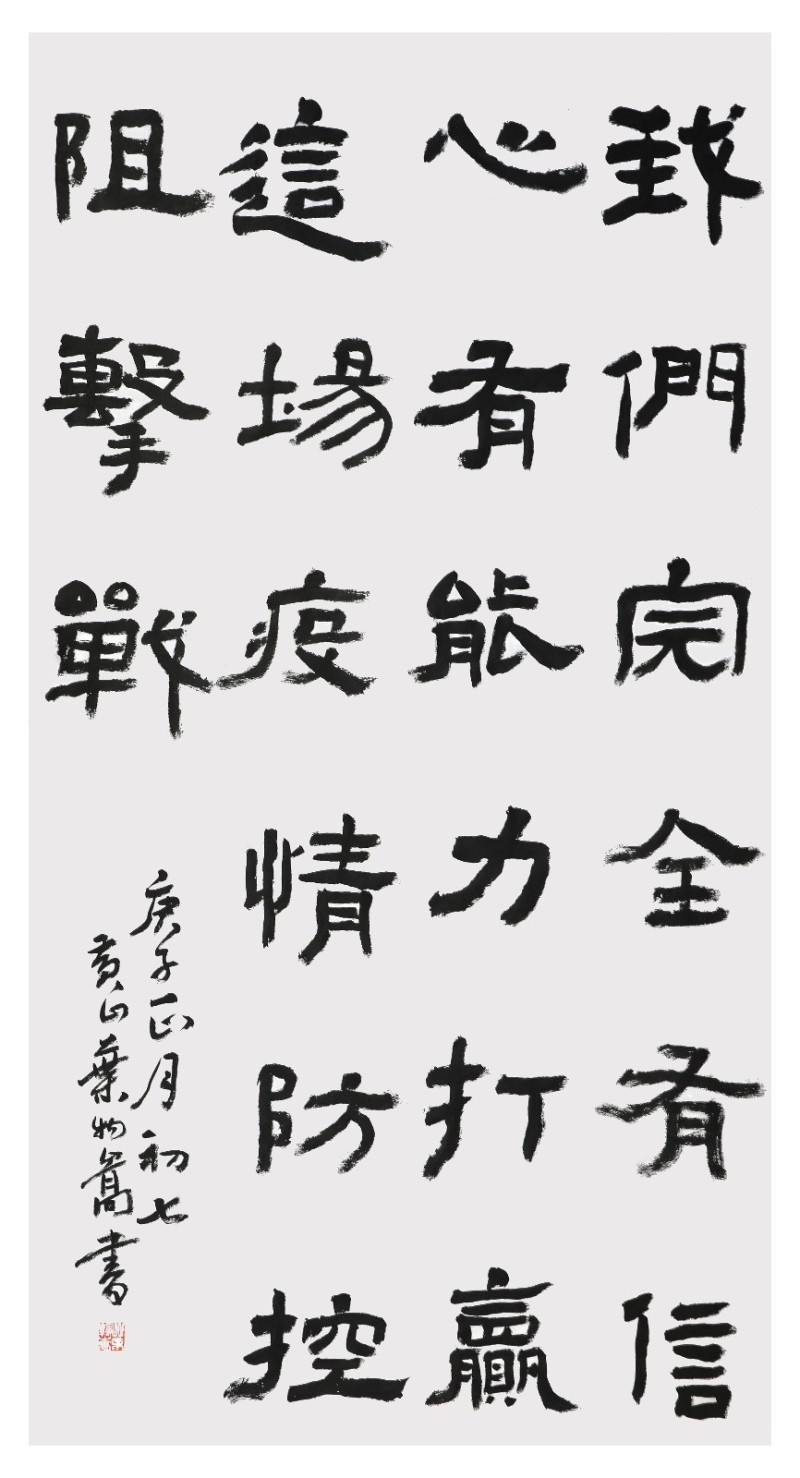 我們完全有信
心有能力打贏
這場疫情防控
阻擊戰
庚子正月初七
黃山葉
書